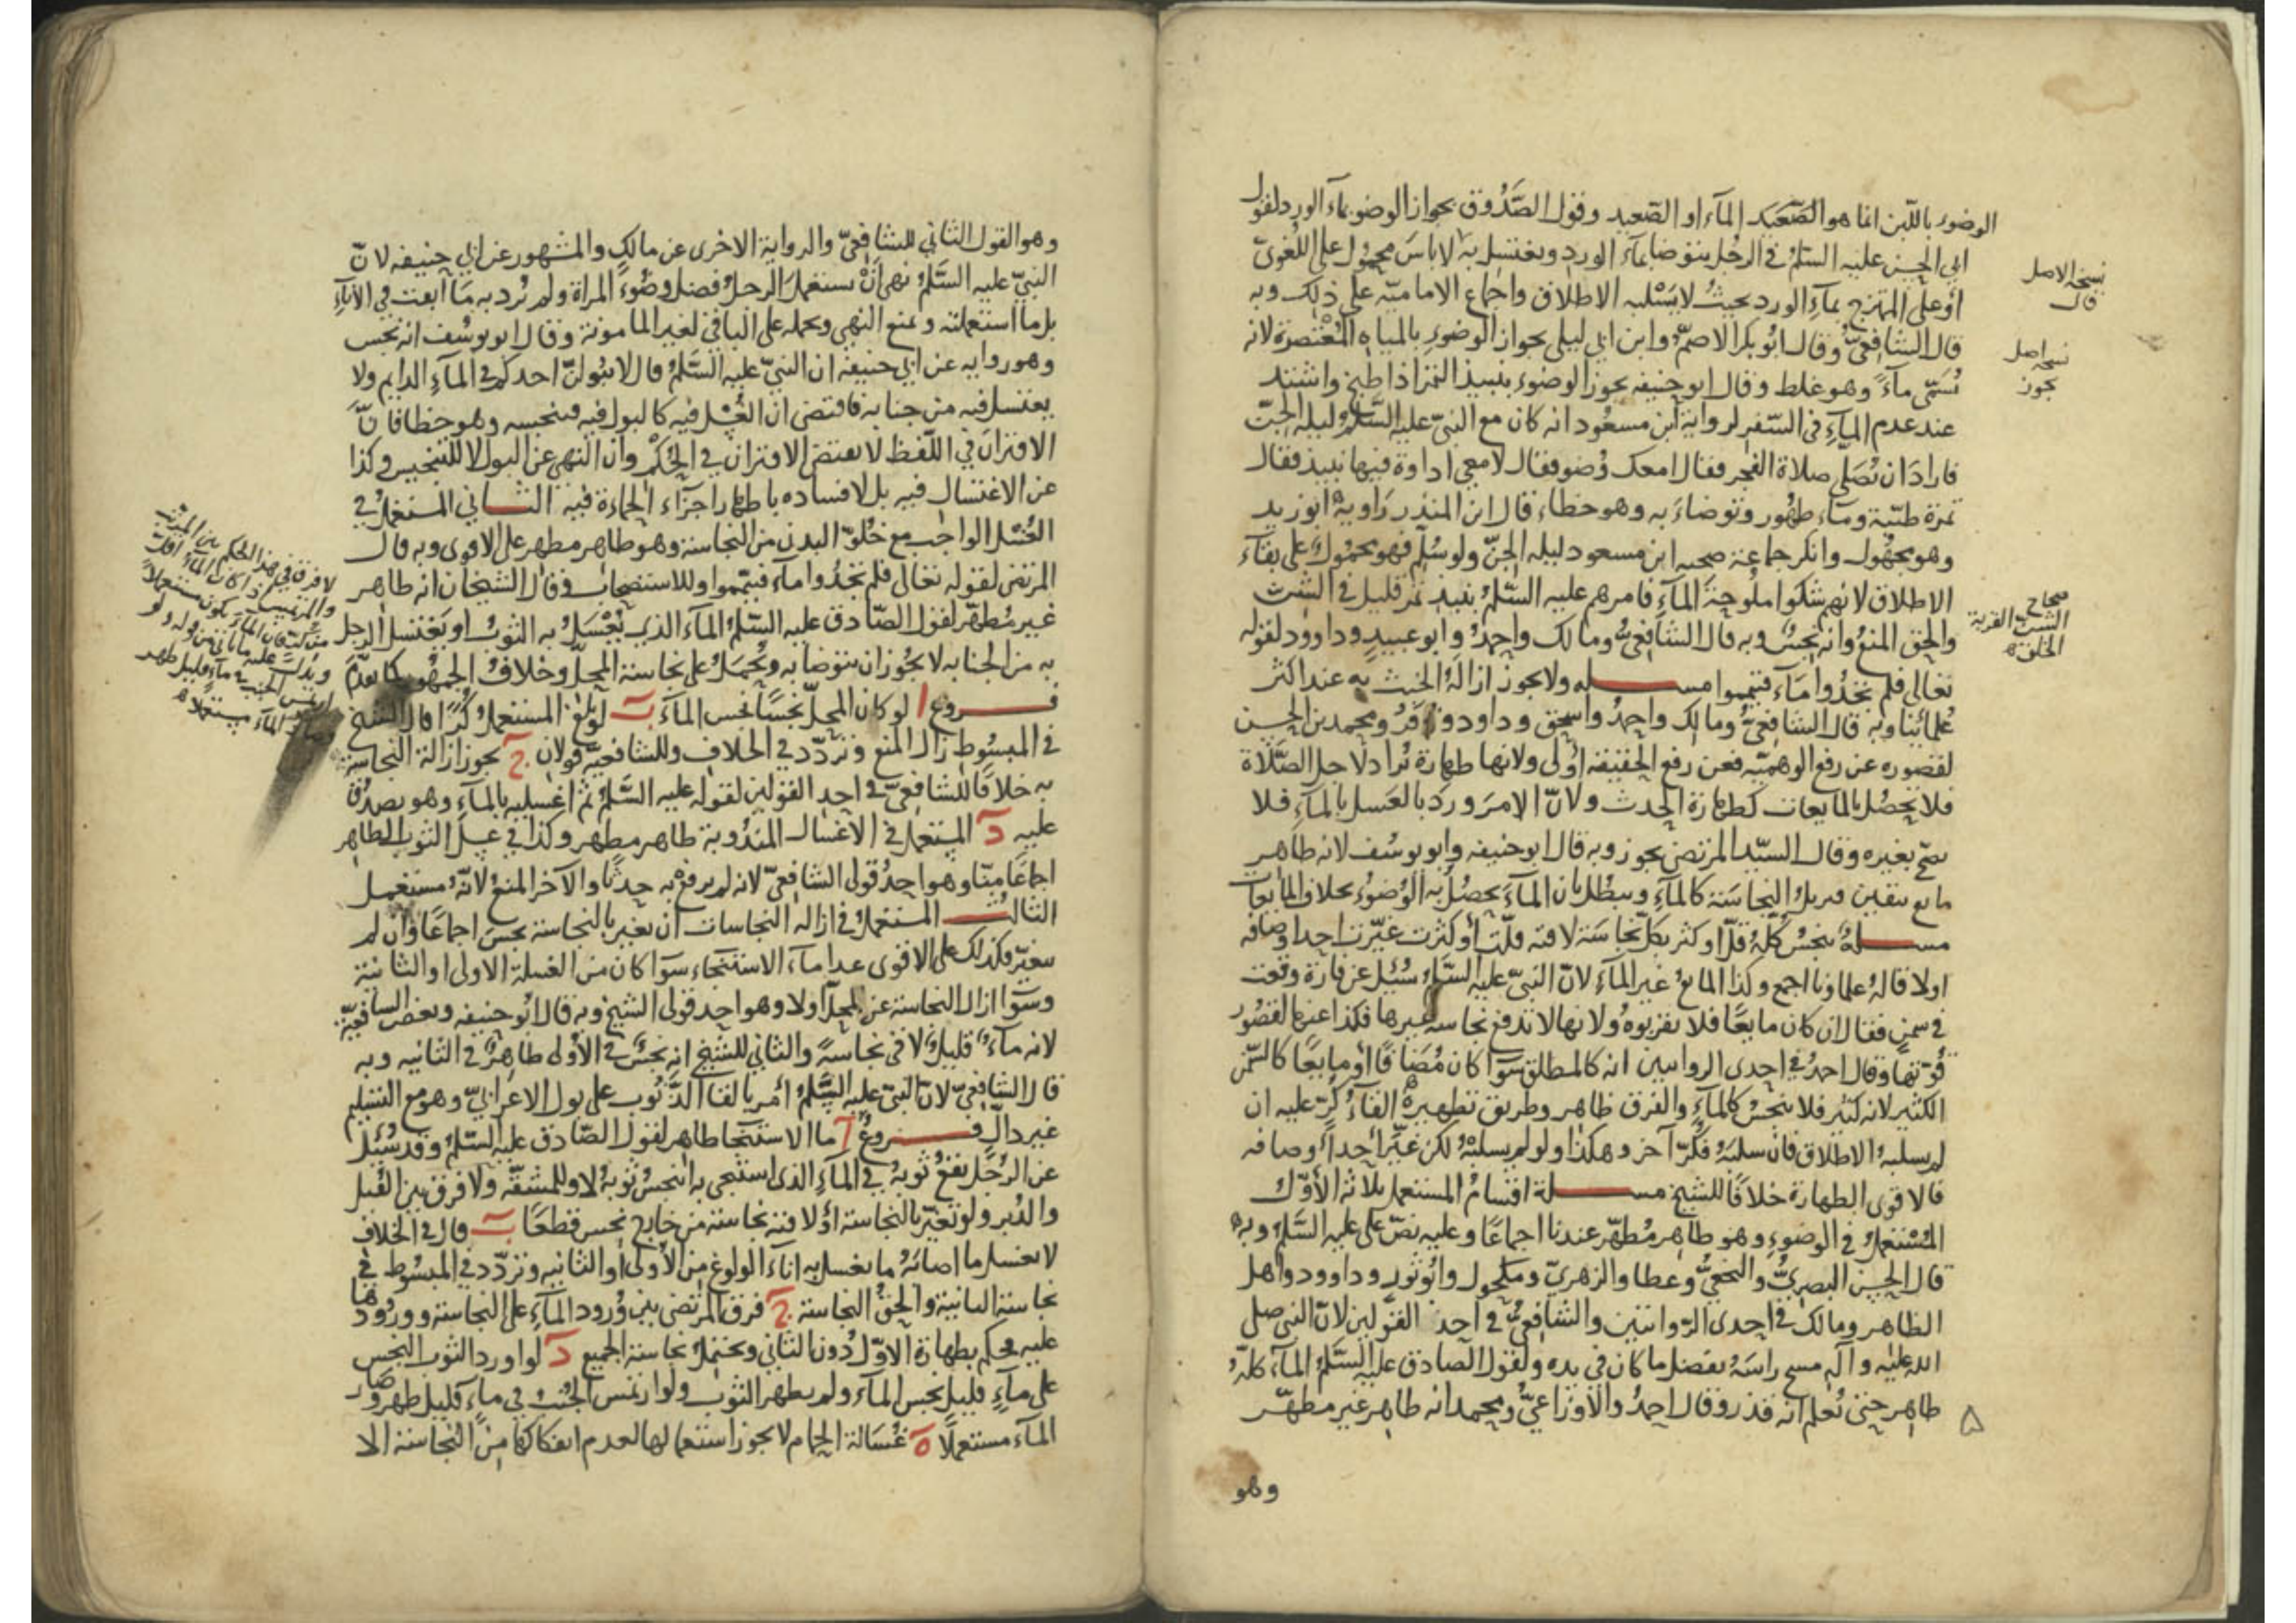 الوضوء باللبن انما هو الصعيد الماء او الصعيد وقول الصَّدُوق بجواز الوضو بماء الورد لقول
ابي الحسن عليه السلم في الرجل يتوضا بماء الورد ويغتسل به لا باسَ محمول على اللغوىّ
او على الممتزج بماء الورد بحيث لا يَسْلبه الاطلاق واجماع الامامية على ذلك وبه
قال الشافعىّ وقال ابو بكر الاصمّ وابن ابي ليلى بجواز الوضوء بالمياه المُعْتصرة لانه
تُسَمّى ماءً وهو غلط وقال ابو حنيفه يجوز الوضوء بنبيذ التمر اذا طبخ واشتد
عند عدم الماء في السّفر لرواية ابن مسعود انه كان مع النبىّ عليه السَّلم ليله الجنّ
فارادَ ان يُصَلى صلاة الفجر فقال امعك وُضو فقال لا معي اداوة فيها نبيذ فقال
تمرة طيّبة وماء طهُور وتوضاء به وهو خطاء قال ابن المنذر رَاويه ابو زيد
وهو مجهُول وانكر جماعة صحبه ابن مسعود ليله الجنّ ولو سُلّم فهو محمُول على بقاء
الاطلاق لانهم شكوا ملُوحة الماء فامرهم عليه السّلم بنبذ تمر قليل في الشنّ
والحق المنعُ وانه نجسٌ وبه قال الشافعىُّ ومالك واحمدُ وابو عبيد وداوود لقوله
تعالى فلم تجدُوا ماء فتيمموا مسله ولا يجوز ازالة الخبث به عند اكثر
عُلمائنا وبه قال الشافعىُّ ومالك واحمدُ واسحق وداود وزفرُ ومحمد بن الحسن
لقصوره عن رفع الوهميّه فعن رفع الحقيقه اولى ولانها طهارة تُراد لاجل الصّلاة
فلا يحصُل بالمايعات كطهارة الحدث ولانّ الامرَ ورَد بالغسل بالماء فلا
يصحّ بغيره وقال السيّد المرتضى يجوز وبه قال ابو حنيفه وابو يوسُف لانه طاهر
مايع بيقين فيزيل النجاسَة كالماء ويبطُل بان الماءَ يحصُلُ به الوُضوُء بخلاف المايعات
مسلة ينجسُ كلهُ قلّ او كثر بكلّ نجاسَة لاقته قلّت او كثرت غيّرت احد اوصافه
اولا قاله علماونا اجمع وكذا المايعُ غير الماء لانّ النبىّ عليه السَّلم سُئل عن فارة وقعت
في سمن فقال ان كان مايعًا فلا تقربوه ولانها لا تدفع نجاسة غيرها فكذا عنها لقصُور
قوّتها وقال احمدُ في احدى الروايتين انه كالمطلق سوا كان مُضَافًا او مايعًا كالسّمن
الكثير لانه كثير فلا ينجسُ كالماء والفرق ظاهر وطريق تطهيره القاءُ كُرّ عليه ان
لم يسلبهُ الاطلاق فان سلبَهُ فكُرّ آخر وهكذا ولو لم يسلبْهُ لكن غيّرَ احدَ اوصافه
فالاقوى الطهارة خلافًا للشيخ مسلة اقسامُ المستعمل ثلاثه الاوّل
المُسْتعملُ في الوضوء وهو طاهر مُطهّر عندنا اجماعًا وعليه نصّ على عليه السَّلم وبه
قال الحسن البصرىُّ والنخعىُّ وعطا والزهرىّ ومكحول وابُو ثور وداوود واهل
الظاهر ومالك في احدى الرّوايتين والشافعىُّ في احد القولين لانّ النبى صلى
الله عليه وآله مسح راسَهُ بفضل ما كان في يده ولقول الصادق عليه السَّلم الماء كلهُ
طاهر حتى تُعلم انه قذر وقال احمدُ والاوزاعىُّ ومحمد انه طاهر غير مطهّر
وهو
نسخه الاصل
قال
نسخه اصل
يجوز
صحاح
الشن القربة
الخلق
٥
وهو القول الثاني للشافعىّ والرواية الاخرى عن مالك والمشهور عن ابي حنيفه لانّ
النبىّ عليه السَّلم نهى اَنْ يستعملَ الرجلُ فضل وضُوء المراة ولم يُرد به مَا ابقت في الاناء
بل ما استعملته ونمنع النهي ويحمله على الباقي لغير المامونة وقال ابو يوسُف انه نجس
وهو روايه عن ابي حنيفه ان النبىّ عليه السَّلم قال لا يبُولنّ احدكم في الماء الدايم ولا
يغتسل فيه من جنابة فاقتضى ان الغُسْل فيه كالبول فيه فينجسه وهو خطا فانّ
الاقترانَ في اللّفظ لا يقتضى الاقتران في الحُكْم وان النهى عن البول لا للتنجيس وكذا
عن الاغتسال فيه بل لافساده باظهار اجزاء الحماءة فيه الثاني المستعملُ في
الغُسْل الواجب مع خُلوّ البدن من النجاسة وهو طاهر مطهر على الاقوى وبه قال
المرتضى لقوله تعالى فلم تجدُوا ماء فتيمّموا وللاستصحاب وقال الشيخان انه طاهر
غير مُطهّر لقول الصّادق عليه السّلم الماء الذى يُغْسَلُ به الثوبُ او يَغتسل الرجل
به من الجنابه لا يجُوز ان يتوضا به ويُحْمَلُ على نجاسة المحلّ وخلافُ الجمهُور كما تقدّمَ
فروع ا لو كان المحلّ نجسًا نجس الماء ب لو بلغ المستعملُ كُرًّا قال الشيخ
في المبسوط زال المنع وتردّد في الخلاف وللشافعيّة قولان ج يجوز ازالة النجاسة
به خلافًا للشافعىّ في احد القولين لقوله عليه السَّلم ثم اغسليه بالماء وهو يصدُق
عليه د المستعملُ في الاغسال المندُوبة طاهر مطهر وكذا في غسل الثوب الطاهر
اجماعًا منّا وهو احدُ قولى الشافعىّ لانه لم يرفع به حدثًا والآخر المنعُ لانّهُ مستعمل
الثالث المستعملُ في ازالة النجاسات ان تغير بالنجاسة نجسَ اجماعًا وان لم
يتغيّر فكذلك على الاقوى عدا ماء الاستنجاء سوا كان من الغسلة الاولى او الثانية
وسَوا ازال النجاسة عن المحلّ او لا وهو احد قولى الشيخ وبه قال ابُو حنيفه وبعض الشافعيّة
لانه ماءٌ قليلٌ لاقى نجاسةً والثاني للشيخ انه نجسٌ في الاولى طاهرٌ في الثانيه وبه
قال الشافعىّ لانّ النبىّ عليه السَّلم امر بالقا الذَّنُوب على بول الاعرابىّ وهو مع التسليم
غير دالّ فروعٌ آ ما الاستنجا طاهر لقول الصّادق عليه السّلم وقد سُئل
عن الرّجُل يقعُ ثوبهُ في الماء الذى استنجى به اينجسُ ثوبهُ لا وللمشقّه ولا فرق بين القُبل
والدُبر ولو تغيّر بالنجاسة او لاقته نجاسة من خارج نجس قطعًا ب قال في الخلاف
لا يغسل ما اصابَهُ ما يغسل به اناء الولوغ من الاولى او الثانيه وتردّد في المبسُوط في
نجاسة الثانية والحقُّ النجاسة ج فرق المرتضى بين وُرود الماء على النجاسة وورُودها
عليه فحكم بطهارة الاوّل دُون الثاني ويحتملُ نجاسة الجميع د لو اورد الثوب النجس
على ماء قليل نجس الماء ولم يطهر الثوب ولو ارتمس الجُنبُ في ماء قليل طهر وصار
الماء مستعملًا ه غُسَالة الحمام لا يجوز استعمالها لعدم انفكاكها من النجاسة الا
لا فرق في هذا الحكم بين المرتب
والمرتمس اذا كان الماء اقلّ
من كرّ فان الماء يكون مستعملًا
ويدُلّ عليه ما ياتى من قوله ولو
ارتمس الجنب في ماء قليل طهر
وصار الماء مستعملًا